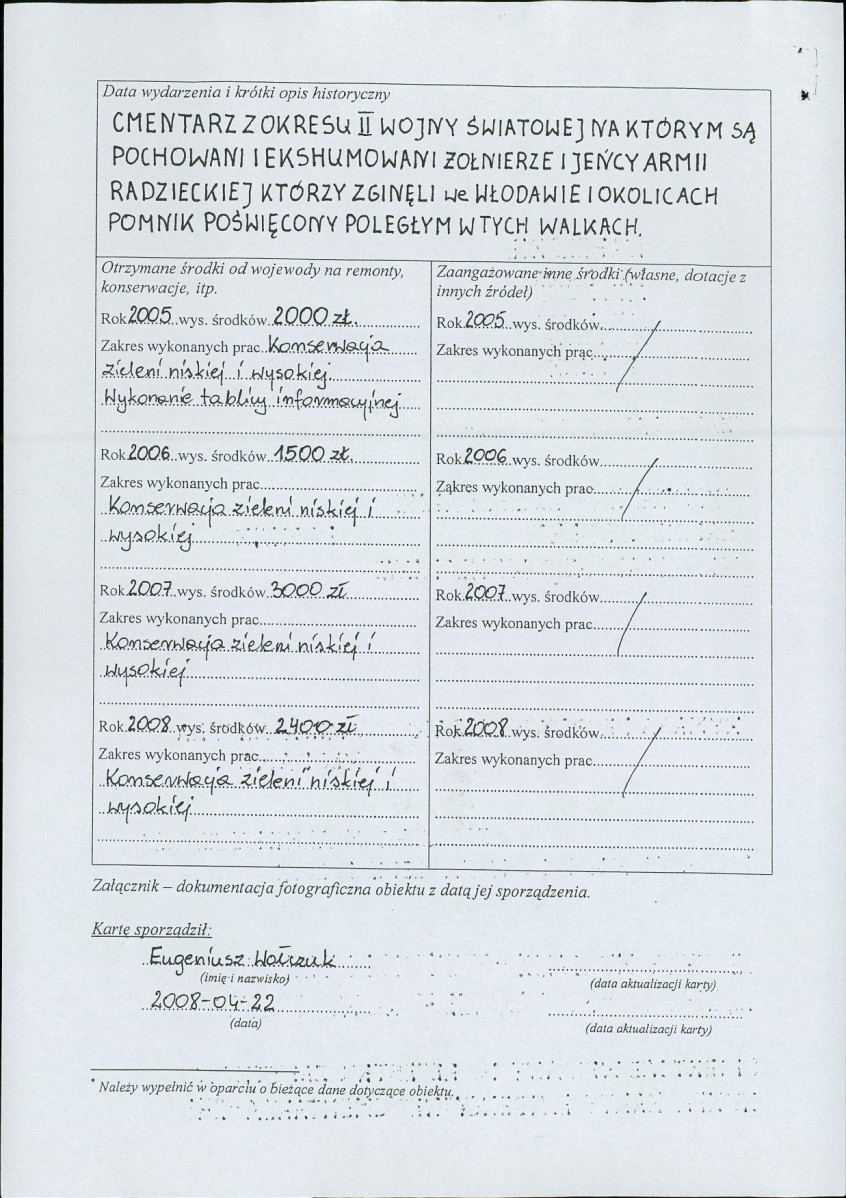 Data wydarzenia i krótki opis historyczny
CMENTARZ Z OKRESU II WOJNY ŚWIATOWEJ NA KTÓRYM SĄ
POCHOWANI I EKSHUMOWANI ŻOŁNIERZE I JEŃCY ARMII
RADZIECKIEJ KTÓRZY ZGINĘLI we WŁODAWIE I OKOLICACH
POMNIK POŚWIĘCONY POLEGŁYM W TYCH WALKACH.
Otrzymane środki od wojewody na remonty,
konserwacje, itp.
Rok 2005 wys. środków 2000 zł.
Zakres wykonanych prac Konserwacja
zieleni niskiej i wysokiej.
Wykonanie tablicy informacyjnej
Rok 2006 wys. środków 1500 zł.
Zakres wykonanych prac
Konserwacja zieleni niskiej i
wysokiej
Rok 2007 wys. środków 3000 zł
Zakres wykonanych prac
Konserwacja zieleni niskiej i
wysokiej
Rok 2008 wys. środków 2400 zł
Zakres wykonanych prac
Konserwacja zieleni niskiej i
wysokiej
Zaangażowane inne środki (własne, dotacje z
innych źródeł)
Rok 2005 wys. środków
Zakres wykonanych prac
Rok 2006 wys. środków
Zakres wykonanych prac
Rok 2007 wys. środków
Zakres wykonanych prac
Rok 2008 wys. środków
Zakres wykonanych prac
Załącznik – dokumentacja fotograficzna obiektu z datą jej sporządzenia.
Kartę sporządził:
Eugeniusz Wołczuk
(imię i nazwisko)
2008-04-22
(data)
(data aktualizacji karty)
(data aktualizacji karty)
* Należy wypełnić w oparciu o bieżące dane dotyczące obiektu.